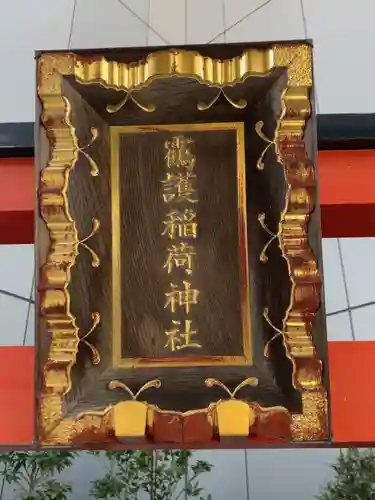 靍護稲荷神社